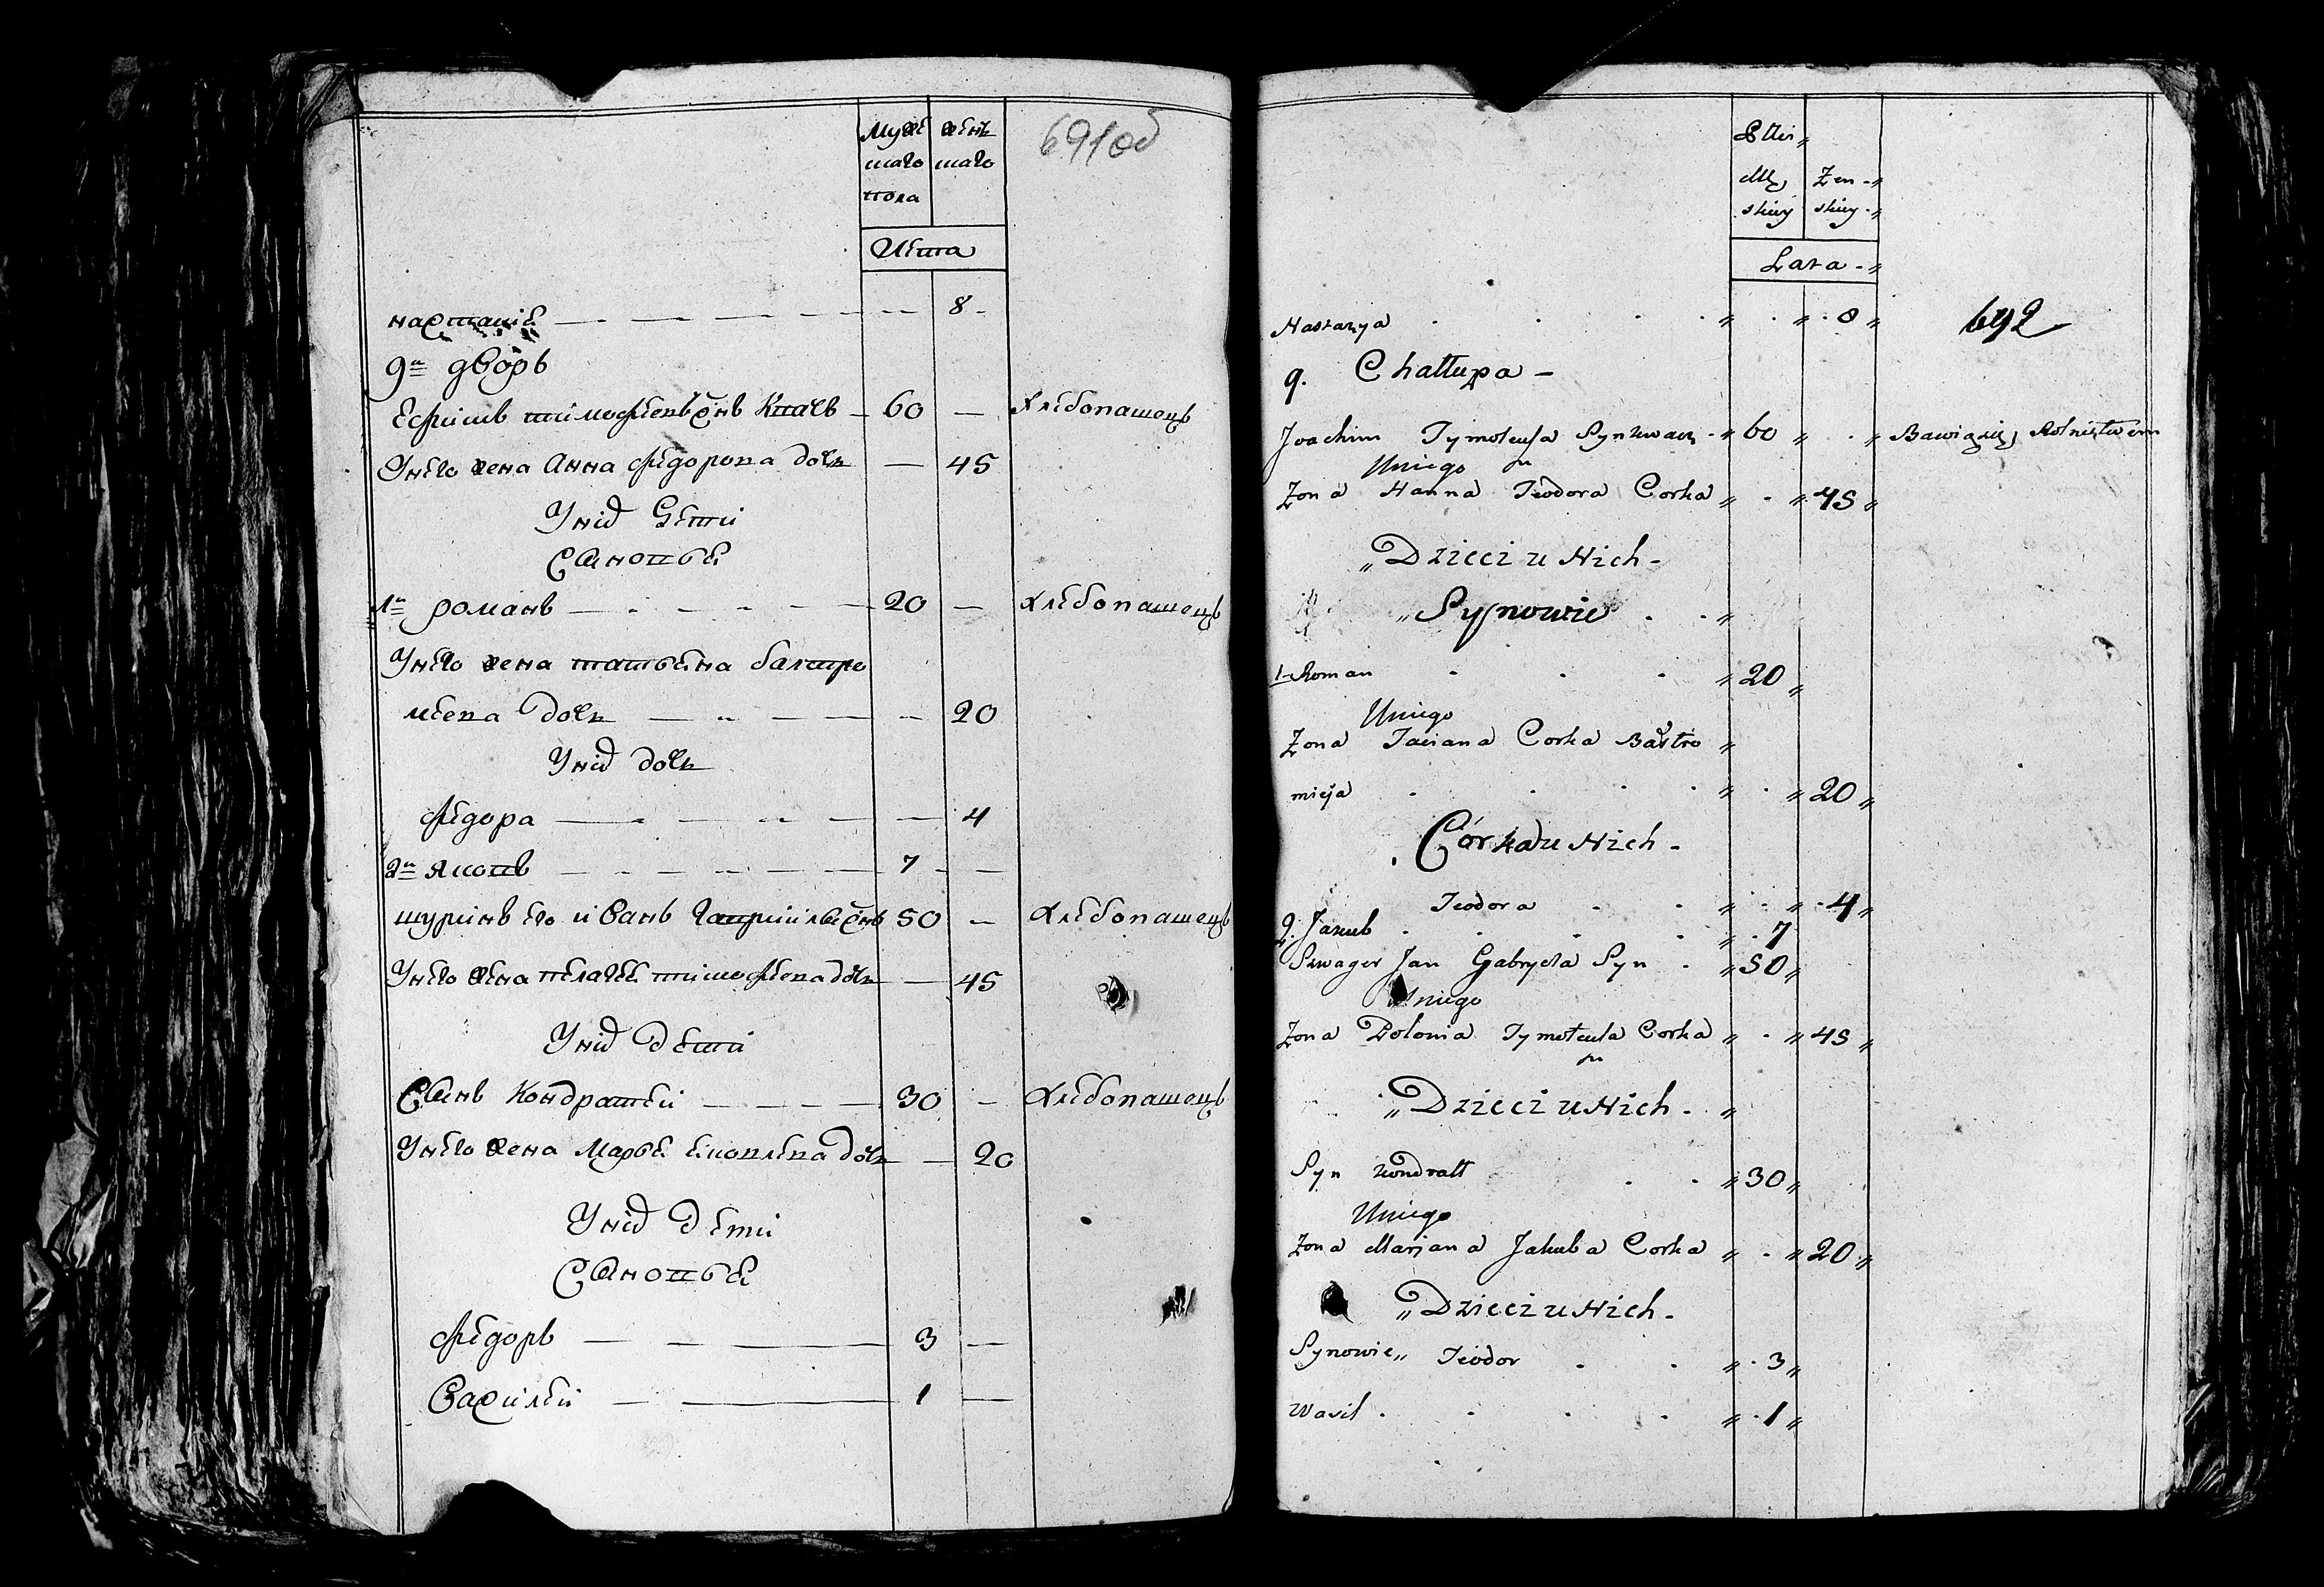 Муже женъ
скаго скаго
пола
691об
Лета
настасіе 8
9й дворъ
Ефимъ тимофеевъ снъ Кпаевъ 60 — Хлебопашецъ
Унего жена Анна федорова дочь — 45
Уних дети
Сыновье
1й романъ 20 — хлебопашецъ
Унего жена татьена балтро
меева дочь 20
Уних дочь
федора 4
2й яковъ 7
шуринъ его иванъ гавриловъ снъ 50 — Хлебопашецъ
Унего жена пелагее тимофеева дочь — 45
Уних дети
Сынъ Кондратей 30 — Хлебопашецъ
Унего жена Марье яковлева дочь — 20
Уних дети
Сыновье
федоръ 3 —
Василей 1 —
Płci
Mę Zen
skiey skiey
Lata
Nastazya 8
692
9. Chałłupa
Joachim Tymoteusza Syn 60 Bawiąsię Rolnictwem
Uniego
Zona Hanna Teodora Corka 45
Dzieci u Nich
Synowie
1 Roman 20
Uniego
Zona Taciana Corka Bałtro
mieja 20
Córka u Nich
Teodora 4
2. Jakub 7
Szwagier Jan Gabryela Syn 50
Uniego
Zona Polonia Tymoteusza Corka 45
Dzieci u Nich
Syn Kondratt 30
Uniego
Zona Marjana Jakuba Corka 20
Dzieci u Nich
Synowie Teodor 3
Wasil 1